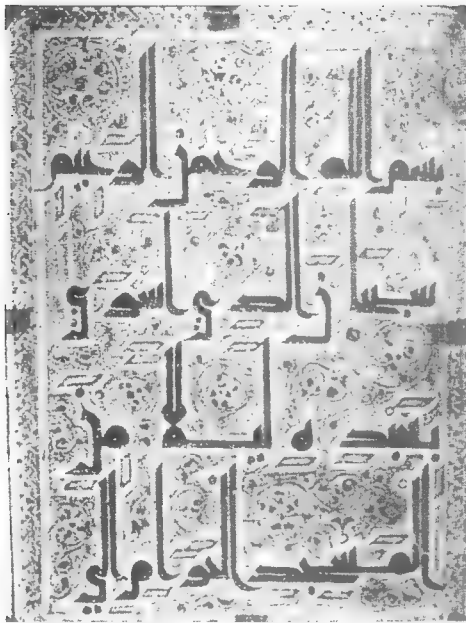 بسم الله الرحمن الرحيم
سبحن الذي اسرى
بعبده ليلا من
المسجد الحرام الى